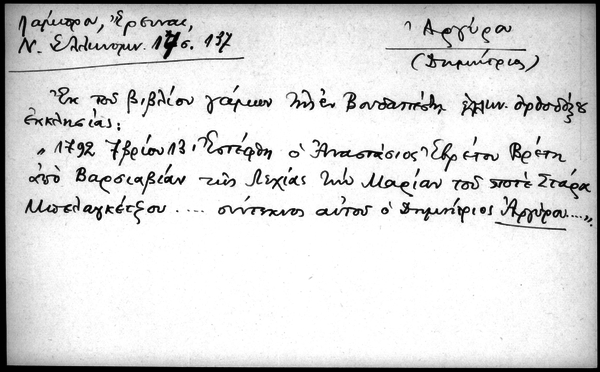 Λάμπρου, Ἔρευναι,
Ν. Ἑλληνομν. 17 σ. 137
Ἀργύρα
(Δημήτριος)
Ἐκ τοῦ βιβλίου γάμων τῆς ἐν Βουδαπέστῃ ἑλλην. ὀρθοδόξου
ἐκκλησίας:
„ 1792 7βρίου 13. Ἐστέφθη ὁ Ἀναστάσιος Ἐβρέτου Βρέτη
ἀπὸ Βαρσιαβίαν τῆς Λεχίας τὴν Μαρίαν τοῦ ποτὲ Στάρα
Μπελαγκέτζου .... σύτεκνος αὐτοῦ ὁ Δημήτριος Ἀργύρα....„.